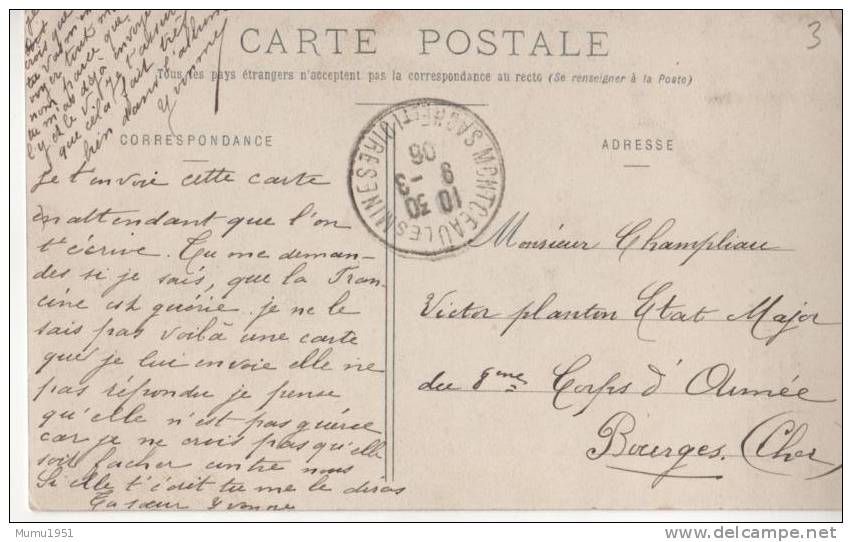 CARTE POSTALE
3
Tous les pays étrangers n'acceptent pas la correspondance au recto (Se renseigner à la Poste)
CORRESPONDANCE
ADRESSE
Je t'envoie cette carte
en attendant que l'on
t'écrive. Tu me deman-
des si je sais, que la Fran-
cine est guérie. je ne le
sais pas voilà une carte
que je lui envoie elle ne
pas répondu je pense
qu'elle n'est pas guérie
car je ne crois pas qu'elle
soit facher contre nous
Si elle t'écrit tu me le diras
Ta sœur Yvonne
que cela fait très
bien dans l'album
Yvonne
MONTCEAU LES MINES SAONE-ET-LOIRE
10 30
9 -3
06
Monsieur Champliau
Victor planton Etat Major
du 8eme Corps d'Armée
Bourges. (Cher)
Mumu1951
delcampe.net